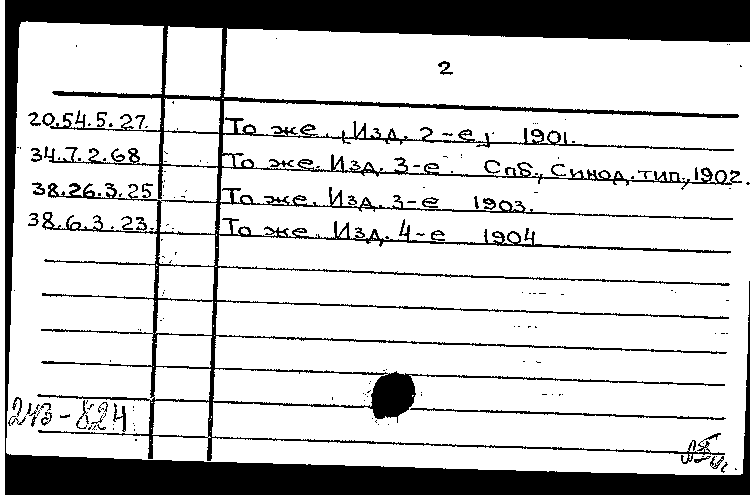 2
20.54.5.27 То же. [Изд. 2-е] 1901.
34.7.2.68 То же. Изд. 3-е. Спб., Синод. тип., 1902.
38.26.3.25 То же. Изд. 3-е 1903.
38.6.3.23. То же. Изд. 4-е 1904
243-824